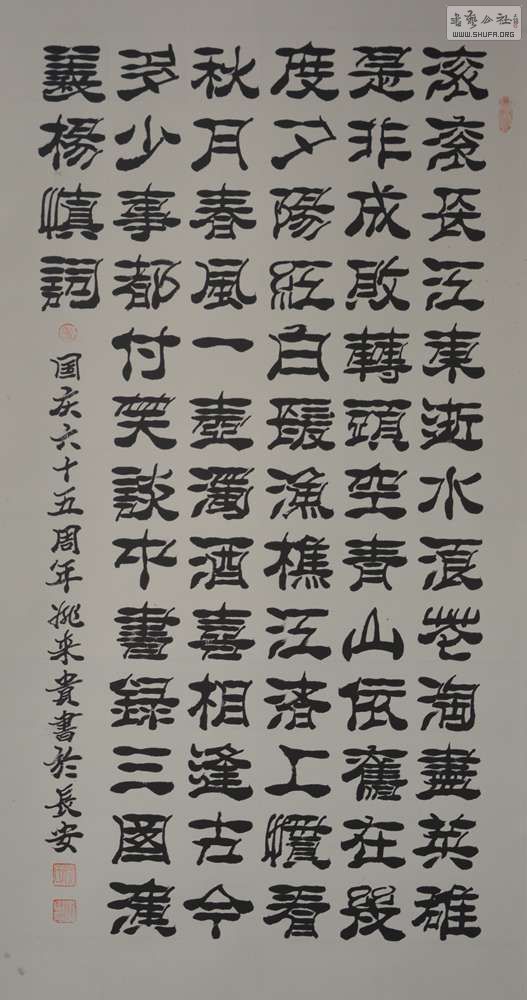 滚滚長江東逝水浪花淘盡英雄
是非成敗轉頭空青山依舊在幾
度夕陽紅白髮漁樵江渚上慣看
秋月春風一壺濁酒喜相逢古今
多少事都付笑談中書録三國演
義楊慎詞
国庆六十五周年姚来貴書於長安
書藝公社
WWW.SHUFA.ORG